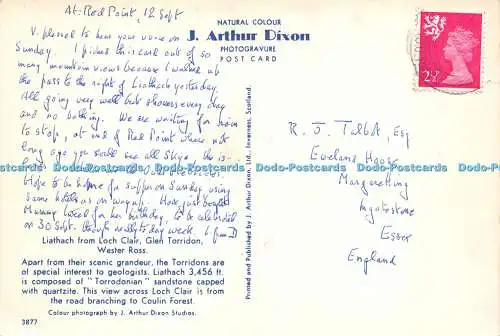 At Red Point, 12 Sept
NATURAL COLOUR
J. Arthur Dixon
PHOTOGRAVURE
POST CARD
V. pleased to hear your voice on
Sunday. I picked this card out of so
many mountain views because I walked up
the pass to the right of Liathach yesterday.
All going very well but showers every day
and no bathing. We are waiting for rain
to stop, at end of Red Point where not
long ago you could see all Skye, the is-
Hope to be home for supper on Sunday using
same hotels as on way up. Have just bought
Mummy for her birthday, to be celebrated
on 30 Sept. though really today week.
Liathach from Loch Clair, Glen Torridon,
Wester Ross.
Apart from their scenic grandeur, the Torridons are
of special interest to geologists. Liathach 3,456 ft.
is composed of "Torrodonian" sandstone capped
with quartzite. This view across Loch Clair is from
the road branching to Coulin Forest.
Colour photograph by J. Arthur Dixon Studios.
3877
Printed and Published by J. Arthur Dixon, Ltd., Inverness, Scotland.
2½P
R. J. Talbot, Esq
House
Margaretting
Ingatestone
Essex
England
Dodo-Postcards Dodo-Postcards Dodo-Postcards Dodo-Postcards Dodo-Postcards Dodo-Postcards